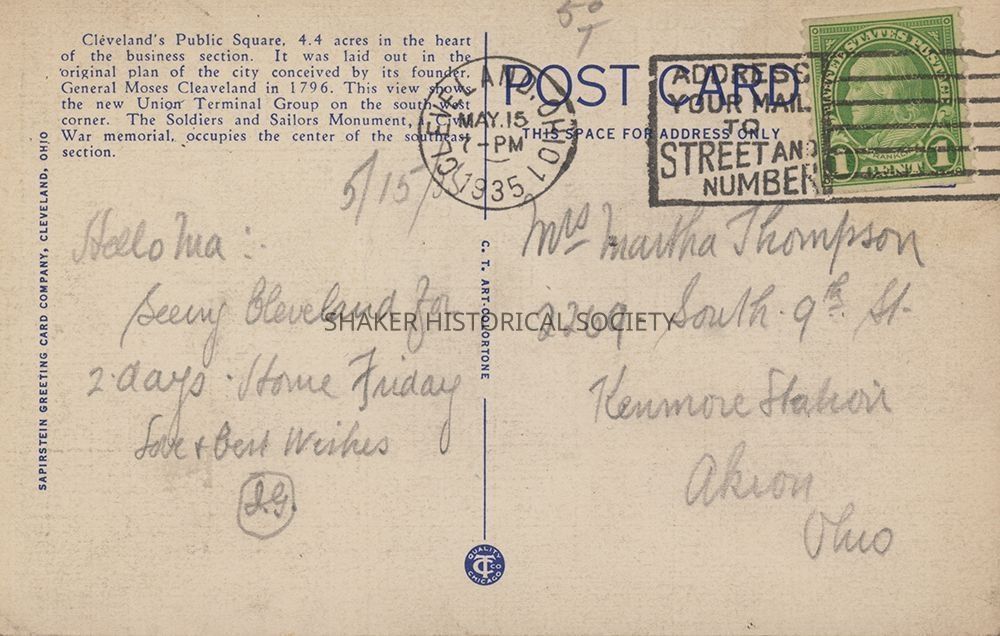 Cleveland's Public Square, 4.4 acres in the heart
of the business section. It was laid out in the
original plan of the city conceived by its founder,
General Moses Cleaveland in 1796. This view shows
the new Union Terminal Group on the southwest
corner. The Soldiers and Sailors Monument, Civil
War memorial, occupies the center of the southeast
section.
POST CARD
THIS SPACE FOR ADDRESS ONLY
CLEVELAND, OHIO 1
MAY.15
7-PM
1935
ADDRESS
YOUR MAIL
TO
STREET AND
NUMBER
UNITED STATES POSTAGE
FRANKLIN
1 CENT 1
5/15/35
Hello Ma:
Seeing Cleveland for
2 days. Home Friday
Love & Best Wishes
I.G.
Mrs Martha Thompson
2269 South 9th St.
Kenmore Station
Akron
Ohio
SHAKER HISTORICAL SOCIETY
SAPIRSTEIN GREETING CARD COMPANY, CLEVELAND, OHIO
C. T. ART-COLORTONE
QUALITY
CT CO
CHICAGO